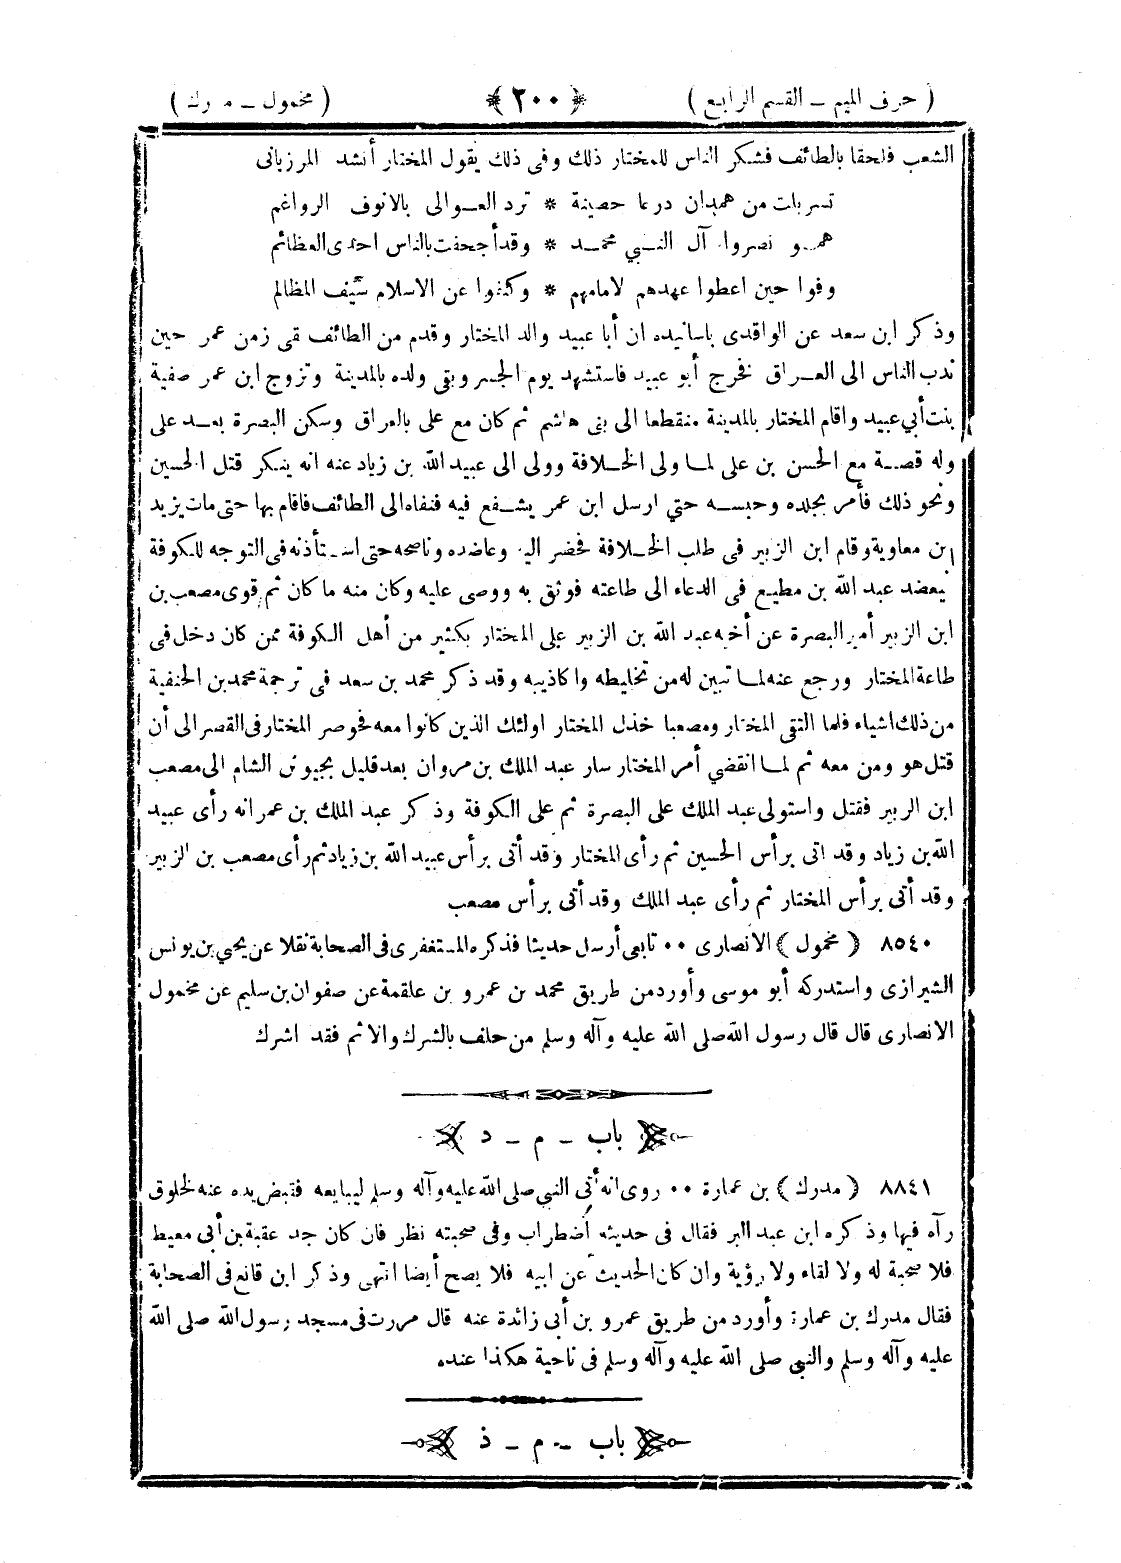 ( حرف الميم ــ القسم الرابع ) ﴿ ٢٠٠ ﴾ ( مخمول ــ مدرك )
الشعب فلحقا بالطائف فشكر الناس للمختار ذلك وفى ذلك يقول المختار أنشد المرزبانى
تسربلت من همدان درعا حصينة * ترد العوالى بالانوف الرواغم
همو نصروا آل النبي محمد * وقد أجحفت بالناس احدى العظائم
وفوا حين اعطوا عهدهم لامامهم * وكفوا عن الاسلام سيف المظالم
وذكر ابن سعد عن الواقدى باسانيده ان أبا عبيد والد المختار وقدم من الطائف فى زمن عمر حين
ندب الناس الى العراق فخرج أبو عبيد فاستشهد يوم الجسر وبقى ولده بالمدينة وتزوج ابن عمر صفية
بنت أبي عبيد واقام المختار بالمدينة منقطعا الى بنى هاشم ثم كان مع على بالعراق وسكن البصرة بعد على
وله قصة مع الحسن بن على لما ولى الخلافة ووشى الى عبيد الله بن زياد عنه انه ينكر قتل الحسين
ونحو ذلك فأمر بجلده وحبسه حتي ارسل ابن عمر يشفع فيه فنفاه الى الطائف فاقام بها حتى مات يزيد
بن معاوية وقام ابن الزبير فى طلب الخلافة فحضر اليه وعاضده وناصحه حتى استأذنه فى التوجه للكوفة
ليعضد عبد الله بن مطيع فى الدعاء الى طاعته فوثق به ووصى عليه وكان منه ما كان ثم قوى مصعب بن
ابن الزبير أمير البصرة عن أخيه عبد الله بن الزبير على المختار بكثير من أهل الكوفة ممن كان دخل فى
طاعة المختار ورجع عنه لما تبين له من تخليطه واكاذيبه وقد ذكر محمد بن سعد فى ترجمة محمد بن الحنفية
من ذلك اشياء فلما التقى المختار ومصعبا خذل المختار اولئك الذين كانوا معه فحوصر المختار فى القصر الى أن
قتل هو ومن معه ثم لما انقضي أمر المختار سار عبد الملك بن مروان بعد قليل بجيوش الشام الى مصعب
ابن الزبير فقتل واستولى عبد الملك على البصرة ثم على الكوفة وذكر عبد الملك بن عمر انه رأى عبيد
الله بن زياد وقد اتى برأس الحسين ثم رأى المختار وقد أتى برأس عبيد الله بن زياد ثم رأى مصعب بن الزبير
وقد أتى برأس المختار ثم رأى عبد الملك وقد أتى برأس مصعب
٨٥٤٠ ( مخمول ) الانصارى ٠٠ تابعى أرسل حديثا فذكره المستغفرى فى الصحابة نقلا عن يحيي بن يونس
الشيرازى واستدركه أبو موسى وأورد من طريق محمد بن عمرو بن علقمة عن صفوان بن سليم عن مخمول
الانصارى قال قال رسول الله صلى الله عليه وآله وسلم من حلف بالشرك والاثم فقد اشرك
باب ــ م ــ د
٨٨٤١ ( مدرك ) بن عمارة ٠٠ روى انه أتى النبي صلى الله عليه وآله وسلم ليبايعه فقبض يده عنه لخلوق
رآه فيها وذكره ابن عبد البر فقال فى حديثه أضطراب وفى صحبته نظر فان كان جد عقبة بن أبى معيط
فلا صحبة له ولا لقاء ولا رؤية وان كان الحديث عن ابيه فلا يصح أيضا انتهى وذكر ابن قانع فى الصحابة
فقال مدرك بن عمارة وأورد من طريق عمرو بن أبى زائدة عنه قال مررت فى مسجد رسول الله صلى الله
عليه وآله وسلم والنبى صلى الله عليه وآله وسلم فى ناحية هكذا عنده
باب ــ م ــ ذ